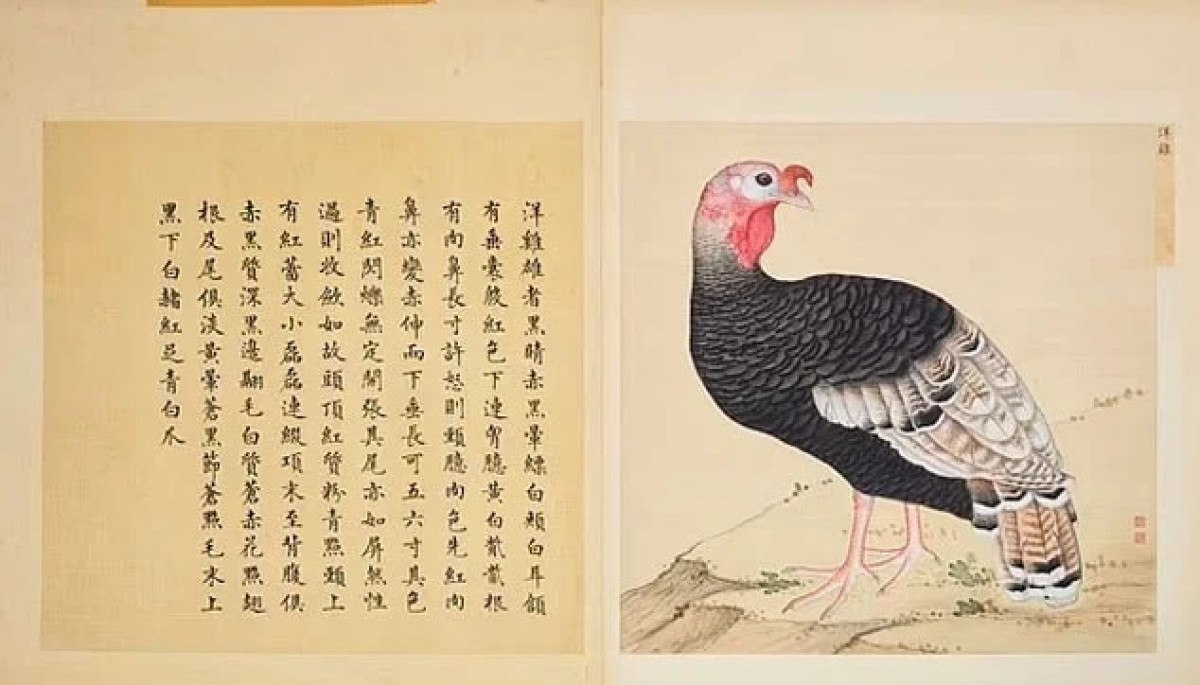 洋雞
洋雞雄者黑睛赤黑暈縹白頰白耳頷
有垂囊殷紅色下連胷臆黃白根
有肉鼻長寸許怒則頸臆肉色先紅肉
鼻亦變赤伸而下垂長可五六寸其色
青紅閃爍無定開張其尾亦如屏然性
過則收斂如故頭頂紅質粉青點頸上
有紅蕾大小磊磊連綴項末至背腹俱
赤黑質深黑邊翮毛白質蒼赤花點翅
根及尾俱淡黃暈蒼黑節蒼點毛末上
黑下白赭紅足青白爪